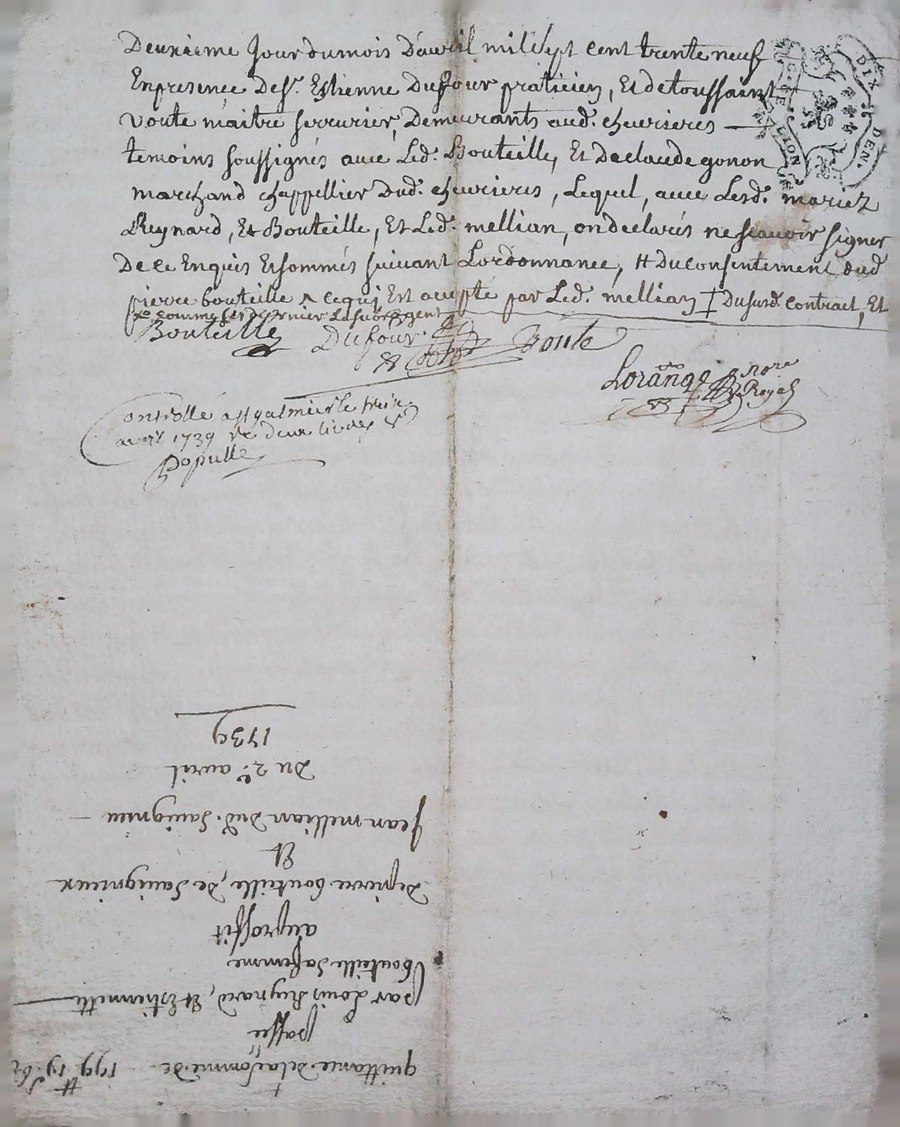 Deuxieme Jour dumois Davril mil sept cent trente neuf
En presence de sr. Estienne Duffour praticien, Et detoussaint
Voute maitre serrurier, Demeurants aud. chevrieres —
temoins soussignés avec Led. Bouteille, Et Declaude gonon
marchand chappellier Dud. chevrieres, Lequel, avec Lesd. mariez
Reynard, Et Bouteille, Et Led. mellian, on declarés ne scavoir signer
De ce Enquis Et sommés suivant Lordonnance, # Du consentement dud.
pierre bouteille ^ ce qui Est accepté par Led. mellian ‡ Dusurd. contract, Et
comme
Bouteille Dufour Voute
Lorange nore Royal
Controllé a st galmier le
avril 1739 rc deux livres
Populle
DIX DEN.
LION
quittance. de la somme. de 199# 19s. 6d
passée
par Louis Reynard, Et Estiennette
bouteille sa femme
au proffit
de pierre bouteille, de Savignieux
Et
Jean mellian dud. Savignieu —
Du 2e. avril
1739